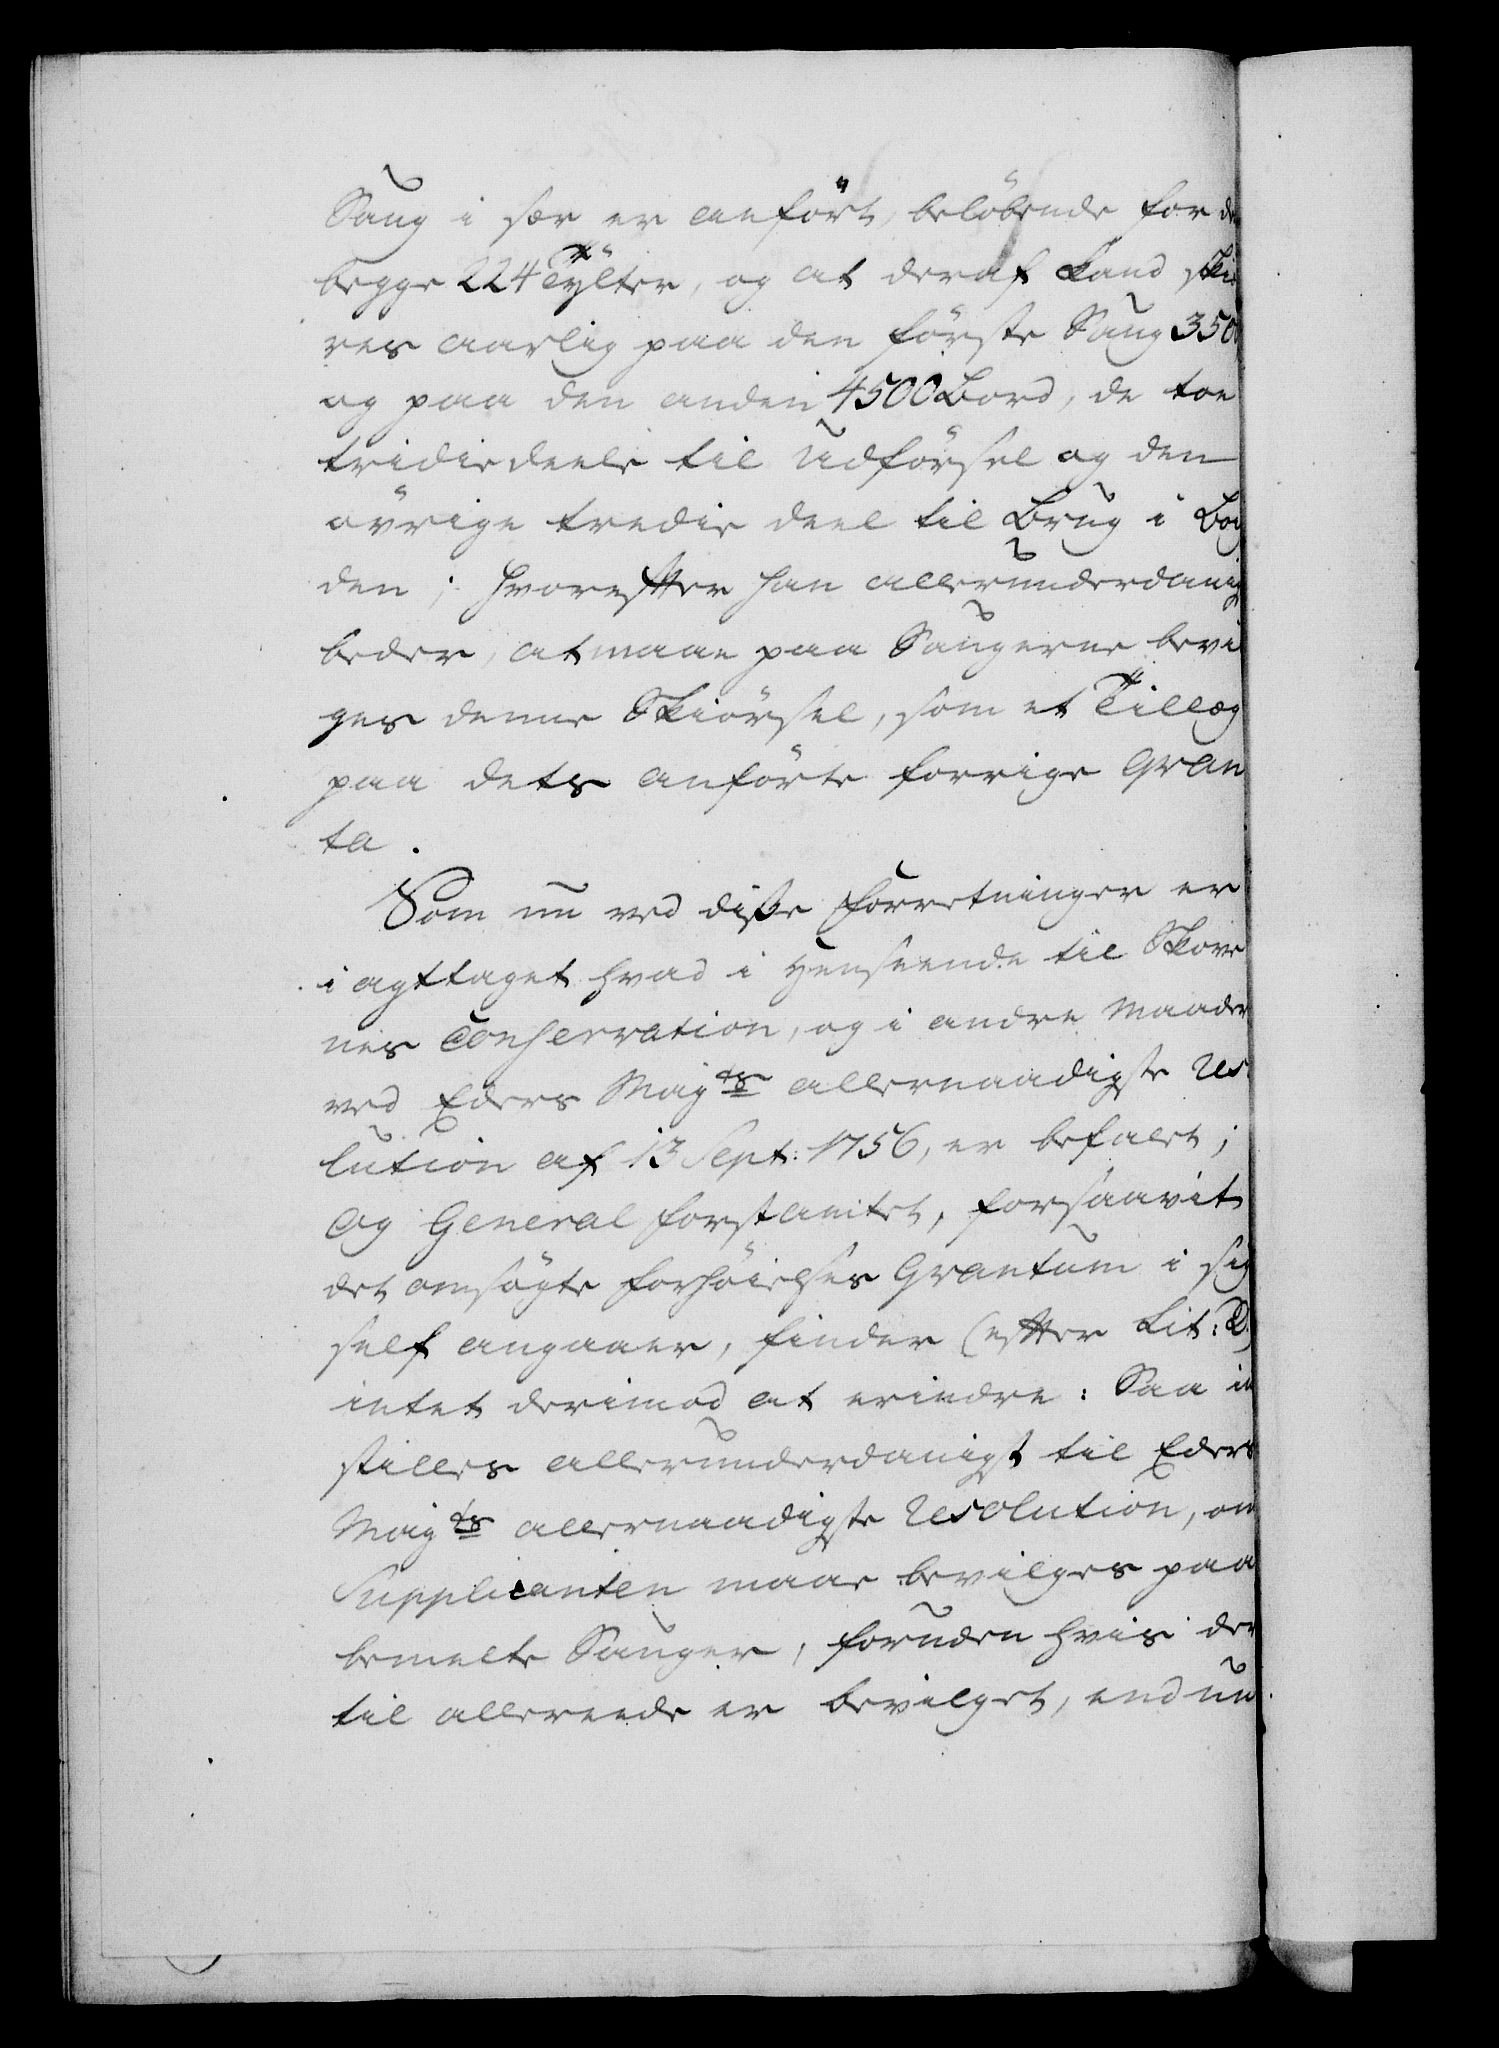 Saug i sær er anført, beløbende for de
begge 224 Tylter, og at deraf kand skiæ
res aarlig paa den første Saug 350
og paa den anden 4500 Bord, de toe
tridiedeele til Udførsel og den
øvrige tredie deel til Brug i Boy
den; hvorefter han allerunderdanig
beder, at maae paa Saugerne bevi
ges denne Skiørsel, som et Tillæg
paa dets anførte forrige Qvan
ta.
Som nu ved disse Forretninger er
i agttaget hvad i Henseende til Skove
nes Conservation, og i andre Maader
ved Eders Majts allernaadigste Reso
lution af 13 Sept: 1756, er befalet;
og General Forstamtet, forsaavit
det ansøgte Forhøielses Qvantum i sig
self angaaer, finder (efter Lit: D.)
intet derimod at erindre: Saa in
stilles allerunderdanigst til Eders
Majts allernaadigste Resolution, om
Supplicanten maae bevilges paa
bemelte Sauger, foruden hvis der
til allereede er bevilget, endnu